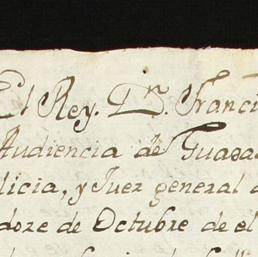 El Rey. Dn. Franci
Audiencia de Guada
licia, y Juez general d
doze de Octubre de el